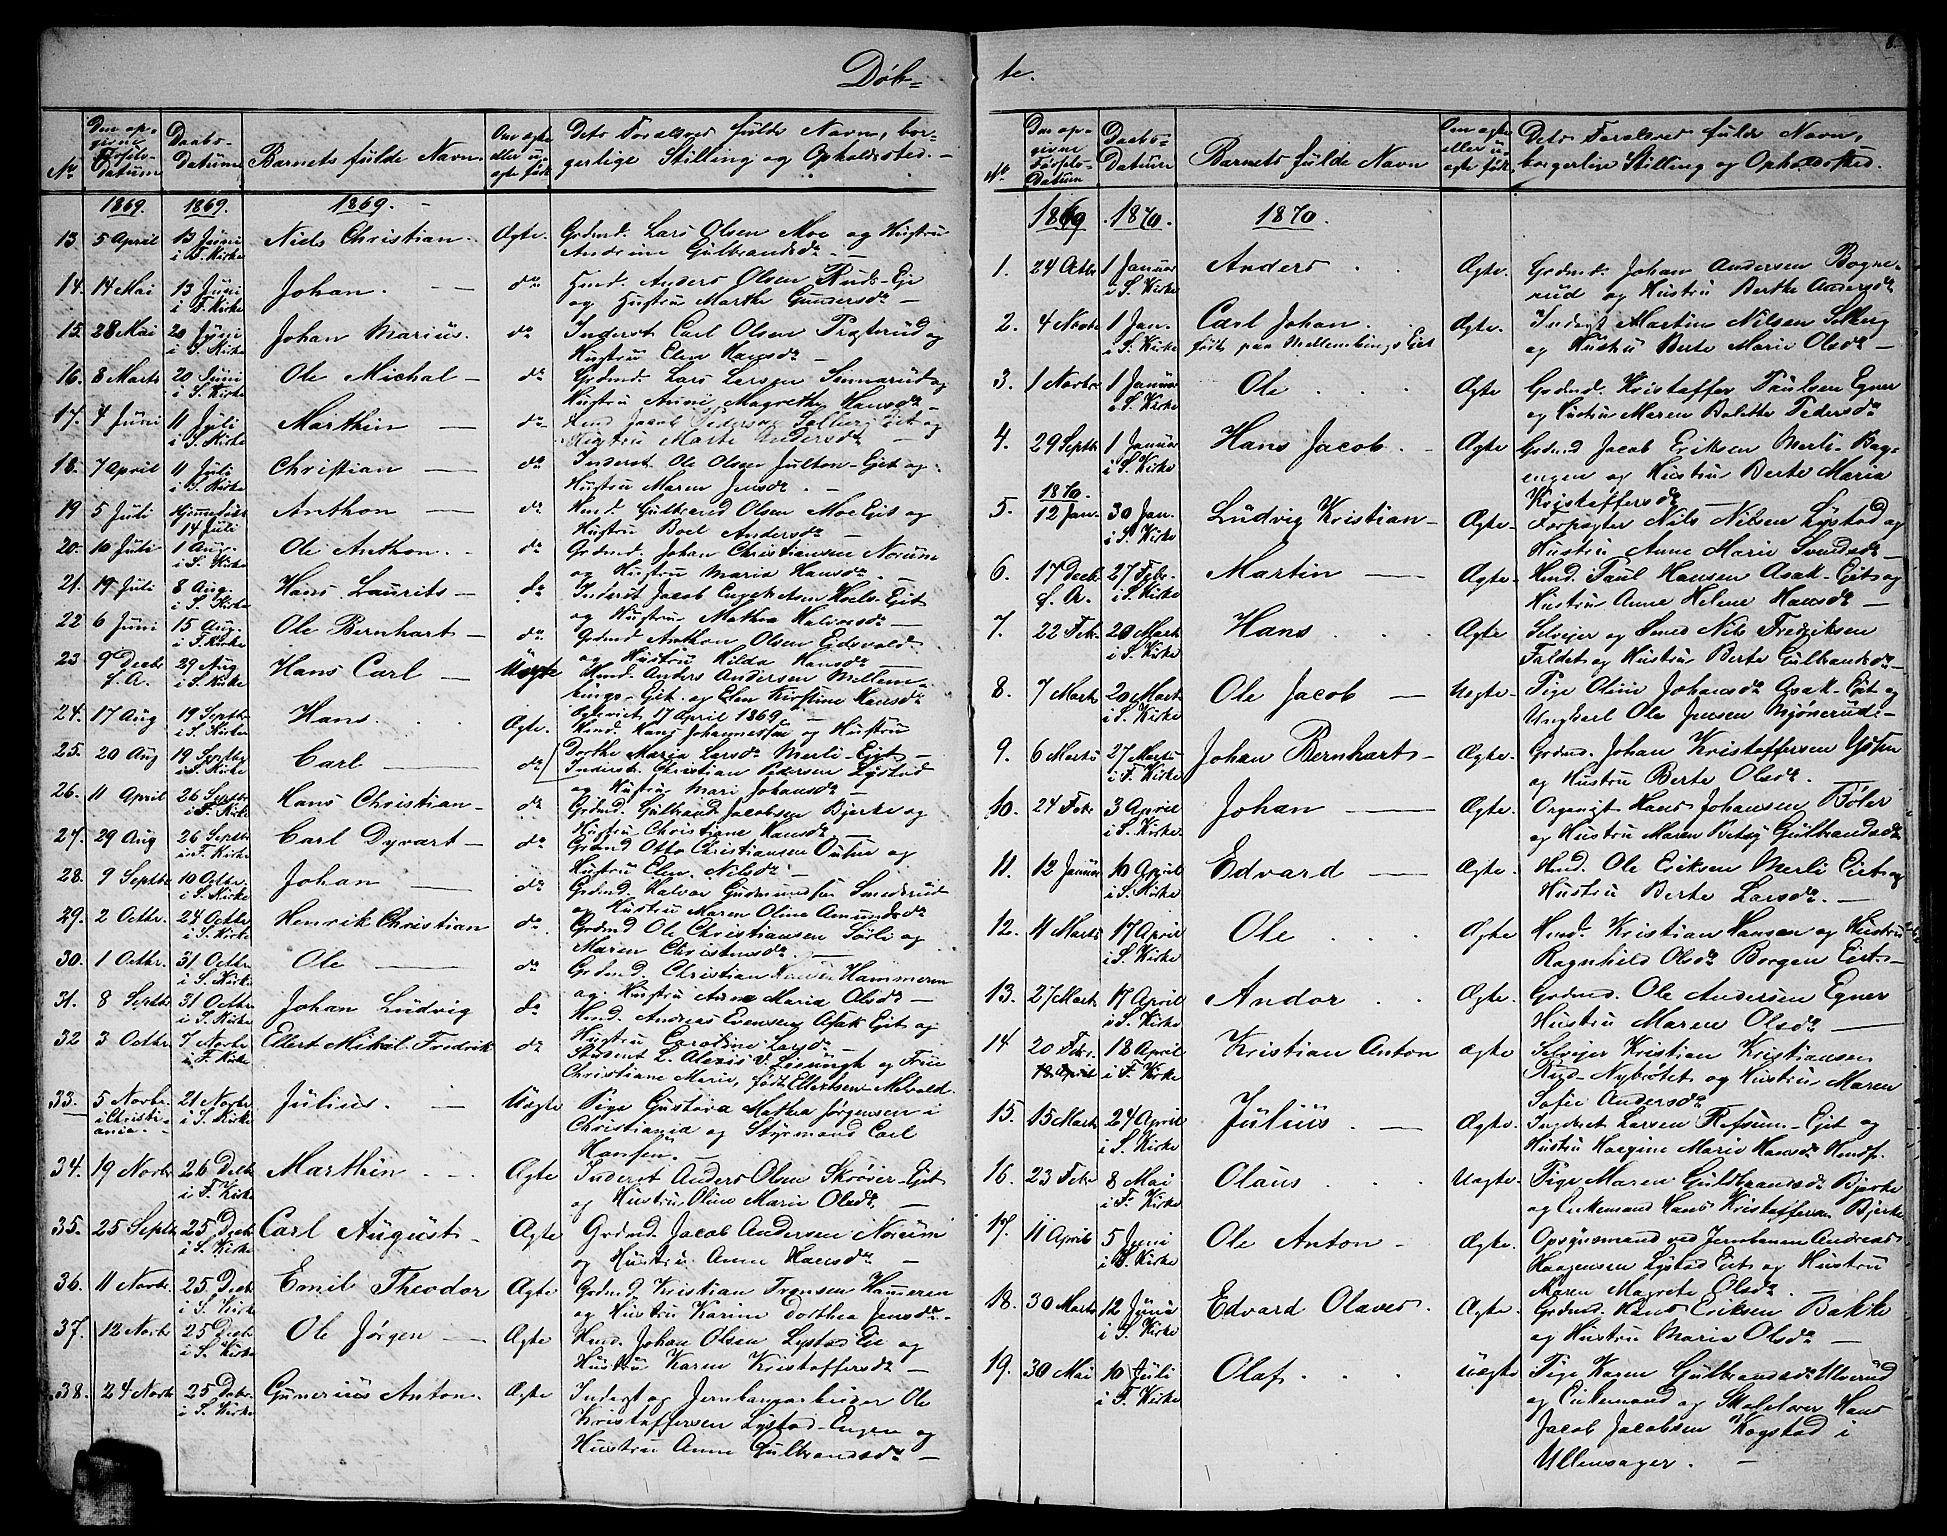 Døb-
No
Den opgivne Fødsels-datum
Daabs-Datum
Barnets fulde Navn.
Om ægte eller uægte født
Dets Forældres fulde Navn, borgerlige Stilling og Opholdssted.
1869. 1869. 1869.
13 5 April 13 Juni i S. Kirke Niels Christian Ægte. Grdmd. Lars Olsen Moe og Hustru
Andrine Gulbrandsdr
14. 14 Mai 13 Juni i F. Kirke Johan. do Husmd. Anders Olsen Ruds-Eje
og Hustru Marthe Gundersdr
15. 28 Mai 20 Juni i S. Kirke Johan Marius. do Inderst Carl Olsen Præterud og
Hustru Elen Hansdr
16. 8 Marts 20 Juni i S. Kirke Ole Michal do Grdmd. Lars Larsen
Hustru Anne Magrethe Hansdr
17. 4 Juni 11 Juli i S. Kirke Marthin do Husmd Jacob Pedersen Solberg Eiet og
Hustru Marte Andersdr
18. 7 April 11 Juli i S. Kirke Christian do Inderst Ole Olsen Julton-Eiet og
Hustru Maren Jensdr
19 5 Juli Hjemmedøbt 14 Juli Anthon do Husmd. Gulbrand Olsen Moe Eiet og
Hustru Boel Andersdr
20. 10 Juli 1 Aug. i S. Kirke Ole Anthon. do Grdmd. Johan Christiansen Norum
og Hustru Maria Hansdr.
21. 19 Juli 8 Aug i S. Kirke Hans Laurits do Inderst Jacob Engebretsen Hvels-Eiet
og Hustru Mathea Halvorsdr
22 6 Juni 15 Aug. i F. Kirke Ole Bernhart do Grdmd Anthon Olsen Eidsvold
og Hustru Hilda Hansdr
23 9 Decbr f. A. 29 Aug i S. Kirke Hans Carl Uægte Husmd. Anders Andersen Mellem-
bings-Eiet. og Elen Kirstine Hansdr
Ægteviet 17 April 1869.
24. 17 Aug 19 Septbr i S. Kirke Hans. Ægte. Husmd. Hans Johannessen og Hustru
Dorthe Maria Larsdr Merli-Eiet
25. 20 Aug 19 Septbr i S. Kirke Carl do Inderst. Christian Pedersen Lystad
og Hustru Mari Johansdr
26. 11 April 26 Septbr i F. Kirke Hans Christian do Grdmd. Gulbrand Jacobsen Bjerke og
Hustru Christiane Hansdr
27. 29 Aug 26 Septbr i F. Kirke Carl Dyvart do Grdmd Otto Christiansen og
Hustru Elen Nilsdr
28. 9 Septbr 10 Octbr. i S. Kirke Johan do Grdmd. Halvor Gudmundsen Smedsrud
og Hustru Maren Oline Amundsdr
29. 2 Octbr. 24 Octbr i S. Kirke Henrik Christian do Grdmd Ole Christiansen Sørli og
Maren Christensdr.
30. 1 Octbr. 31 Octbr. i S. Kirke Ole do Grdmd. Christian Hansen Hammeren
og Hustru Anne Maria Olsdr
31. 8 Septbr 31 Octbr i S. Kirke Johan Ludvig do Husmd. Andreas Evensen Asak Eiet og
Hustru Caroline Larsdr
32 3 Octbr. 7 Novbr i F. Kirke Ellert Mikal Fredrik do Student L. Alexis V. og Frue
Christiane Marie, født Ellertsen-Melvold.
33. 5 Novbr. i Christiania. 21 Novbr i S. Kirke Julius. Uægte Pige Gustava Mathea Jørgensen i
Christiania og Styrmand Carl
Hansen.
34. 19 Novbr 26 Decbr i F. Kirke Marthin Ægte Inderst Anders Olsen Skrøver-Eiet
og Hustru Oline Marie Olsdr.
35. 25 Septbr 25 Decbr i S. Kirke Carl August Ægte Grdmd. Jacob Andersen Norum
og Hustru Anne Hansdr
36. 11 Novbr. 25 Decbr i S. Kirke Emil Theodor Ægte Grdmd Kristian Fransen Hameren
og Hustru Karine Dorthea Jensdr.
37. 12 Novbr 25 Decbr i S. Kirke Ole Jørgen Ægte Husmd. Johan Olsen Lystad Eie og
Hustru Karen Kristoffersdr
38. 24 Novbr 25 Debr. i S. Kirke Gunerius Anton. Ægte Inderst og Jernbanearbeider Ole
Kristoffersen Lystad-Engen og
Hustru Anne Gulbrandsdr
te.
8.
No
Den opgivne Fødsels-Datum
Daabs-Datum
Barnets fulde Navn
Om ægte eller uægte født.
Dets Forældres fulde Navn, borgerlige Stilling og Opholdssted.
1869 1870. 1870.
1. 24 Octbr 1 Januar i S. Kirke Anders Ægte. Grdmd. Johan Andersen Bogne-
rud og Hustru Berthe Andersdr
2. 4 Novbr 1 Jan. i S. Kirke Carl Johan. født paa Mellembings Eiet Ægte. Inderst Martin Nilsen Solberg
og Hustru Berte Marie Olsdr
3. 1 Novbr 1 Januar i S. Kirke Ole Ægte Grdmd. Kristoffer Paulsen Egner
og Hustru Maren Bolette Pedersdr
4. 29 Septbr 1 Januar i S. Kirke Hans Jacob. Ægte Grdmd Jacob Eriksen Merli-Bag-
engen og Hustru Berte Maria
Kristoffersdr
1870.
5. 12 Jan. 30 Jan. i S. Kirke Ludvig Kristian Ægte. Forpagter Nils Nilsen Lystad og
Hustru Anne Marie Svendsdr
6. 17 Decbr f. A. 27 Febr. i S. Kirke Martin Ægte. Husmd. Paul Hansen Asak-Eiet og
Hustru Anne Helene Hansdr
7. 22 Febr 20 Marts i S. Kirke Hans Ægte Selveier og Smed Nils Fredriksen
Faldet og Hustru Berte Gulbrandsdr
8. 7 Marts 20 Marts i S. Kirke Ole Jacob Uægte. Pige Oline Johansdr Asak-Eiet og
Ungkarl Ole Jensen Mjønerud
9. 6 Marts 27 Marts i F. Kirke Johan Bernhart Ægte. Grdmd. Johan Kristoffersen
og Hustru Berte Olsdr.
10. 24 Febr 3 April i S. Kirke Johan Ægte. Organist Hans Johansen Bøler
og Hustru Maren Betsy Gulbrandsdr
11. 12 Januar 10 April i S. Kirke Edvard Ægte. Husmd. Ole Eriksen Merli Eiet og
Hustru Berte Larsdr.
12. 11 Marts 17 April i S. Kirke Ole Ægte Husmd. Kristian Hansen og Hustru
Ragnhild Olsdr Borgen Eiet
13. 27 Marts 17 April i S. Kirke Andor Ægte. Grdmd. Ole Andersen Egner
Hustru Maren Olsdr
14 20 Febr. 18 April 18 April i F. Kirke Kristian Anton ægte Selveier Kristian Kristiansen
Rud-Nybrøtet og Hustru Maren
Sofie Andersdr
15. 15 Marts 24 April i S. Kirke Julius. Ægte. Inderst Larsen Refsum-Eiet og
Hustru Marie Hansdr
16. 23 Febr 8 Mai i F. Kirke Olaus Uægte. Pige Maren Gulbrandsdr Bjerke
og Enkemand Hans Kristoffersen Bjerke
17. 11 April 5 Juni i S. Kirke Ole Anton Ægte. Opsynsmand ved Jernbanen Andreas
Haagensen Lystad Eiet og Hustru
Maren Magrete Olsdr.
18. 30 Marts 12 Juni i S. Kirke Edvard Olaves. Ægte. Grdmd. Hans Eriksen Bakke
og Hustru Maria Olsdr
19. 30 Mai 10 Juli i F. Kirke Olaf. uægte Pige Karen Gulbrandsdr Ulverud
og Enkemand og Skolelærer Hans
Jacob Jacobsen Kogstad i
Ullensager.